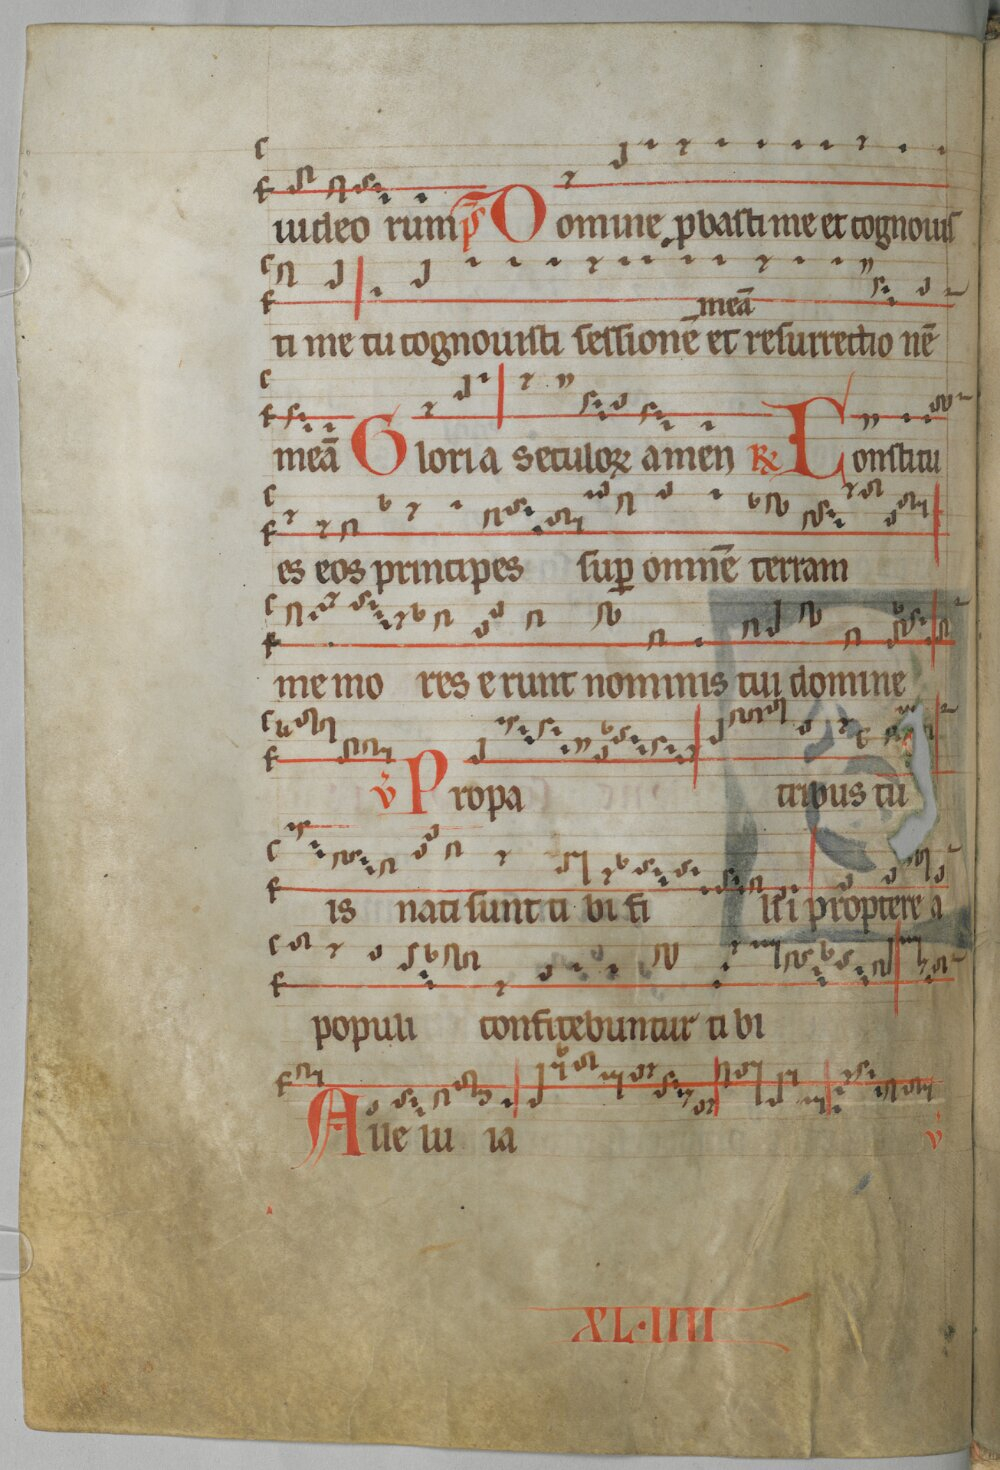 iudeo rum p̄s Domine ꝓbasti me et cognouis
meā
ti me tu cognouisti sessionē et resurrectio nē
meā Gloria seculoꝝ amen ℟ Constitu
es eos principes suꝑ omnē terram
memo res erunt nominis tui domine
v̇ Propa tribus tu
is nati sunt ti bi fi lii proptere a
populi confitebuntur ti bi
Alle lu ia v̇
XL·IIII